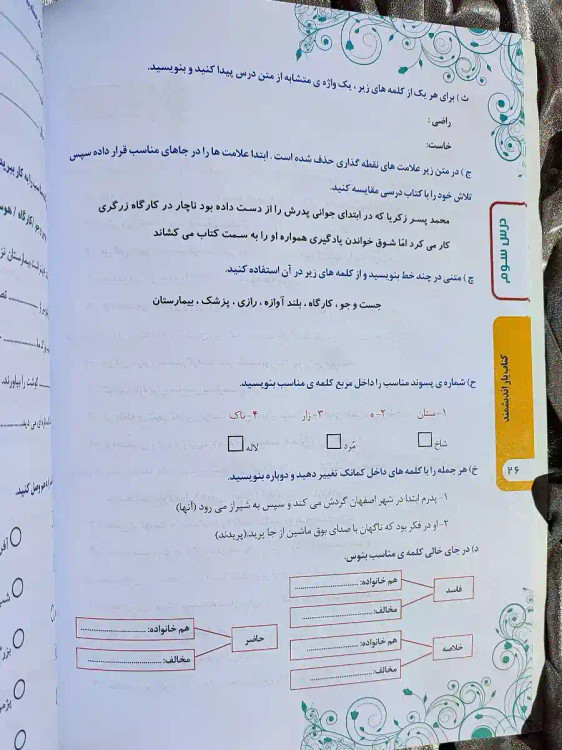 ث) برای هر یک از کلمه های زیر ، یک واژه ی متشابه از متن درس پیدا کنید و بنویسید.
راضی :
خاست:
ج) در متن زیر علامت های نقطه گذاری حذف شده است . ابتدا علامت ها را در جاهای مناسب قرار داده سپس
تلاش خود را با کتاب درسی مقایسه کنید.
محمد پسر زکریا که در ابتدای جوانی پدرش را از دست داده بود ناچار در کارگاه زرگری
کار می کرد امّا شوق خواندن یادگیری همواره او را به سمت کتاب می کشاند
چ) متنی در چند خط بنویسید و از کلمه های زیر در آن استفاده کنید.
جست و جو ، کارگاه ، بلند آوازه ، رازی ، پزشک ، بیمارستان
ح) شماره ی پسوند مناسب را داخل مربع کلمه ی مناسب بنویسید.
۱- ستان ۲- ه ۳- زار ۴- ناک
شاخ مُرد لاله
خ) هر جمله را با کلمه های داخل کمانک تغییر دهید و دوباره بنویسید.
۱- پدرم ابتدا در شهر اصفهان گردش می کند و سپس به شیراز می رود (آنها)
۲- او در فکر بود که ناگهان با صدای بوق ماشین از جا پرید.(پریدند)
د) در جای خالی کلمه ی مناسب بنوس.
فاسد
هم خانواده: ..............................
مخالف: ..............................
خلاصه
هم خانواده: ..............................
مخالف: ..............................
حاضر
هم خانواده: ..............................
مخالف: ..............................
درس سوم
کتاب یار اندیشمند
۲۶